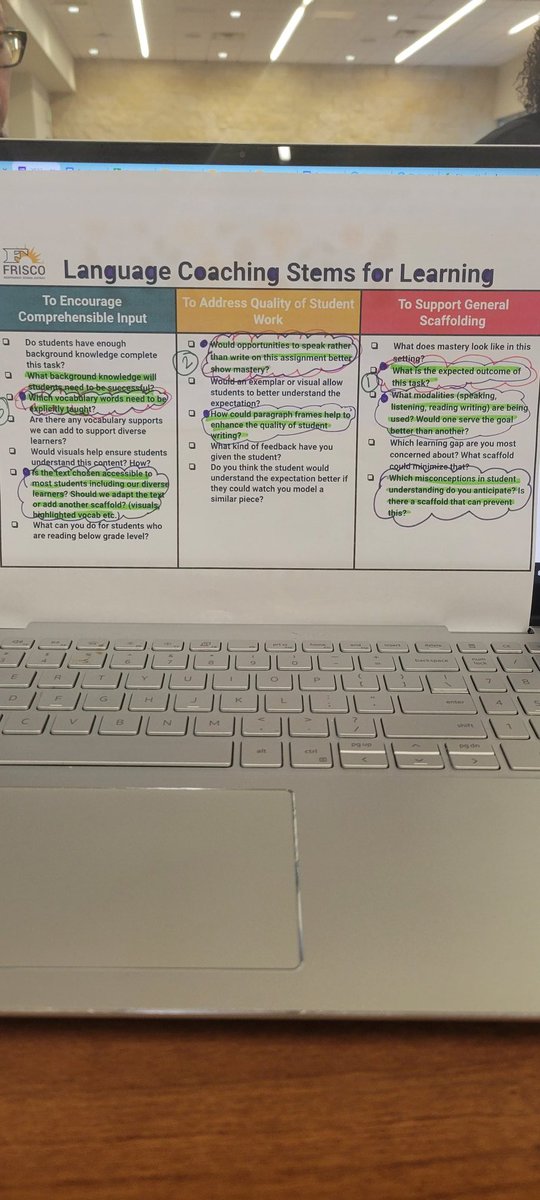 FRISCO
INDEPENDENT SCHOOL DISTRICT
Language Coaching Stems for Learning
To Encourage
Comprehensible Input
Do students have enough
background knowledge complete
this task?
What background knowledge will
students need to be successful?
Which vocabulary words need to be
explicitly taught?
Are there any vocabulary supports
we can add to support diverse
learners?
Would visuals help ensure students
understand this content? How?
Is the text chosen accessible to
most students including our diverse
learners? Should we adapt the text
or add another scaffold? (visuals,
highlighted vocab etc.)
What can you do for students who
are reading below grade level?
To Address Quality of Student
Work
2
Would opportunities to speak rather
than write on this assignment better
show mastery?
Would an exemplar or visual allow
students to better understand the
expectation?
How could paragraph frames help to
enhance the quality of student
writing?
What kind of feedback have you
given the student?
Do you think the student would
understand the expectation better if
they could watch you model a
similar piece?
To Support General
Scaffolding
What does mastery look like in this
setting?
1
What is the expected outcome of
this task?
What modalities (speaking,
listening, reading writing) are being
used? Would one serve the goal
better than another?
Which learning gap are you most
concerned about? What scaffold
could minimize that?
Which misconceptions in student
understanding do you anticipate? Is
there a scaffold that can prevent
this?
home end insert delete
4 5 6 7 8 9 0 backspace num lock
E R T Y U I O P 7 8
D F G H J K L enter 4 5
C V B N M shift 1
alt ctrl pg up pg dn